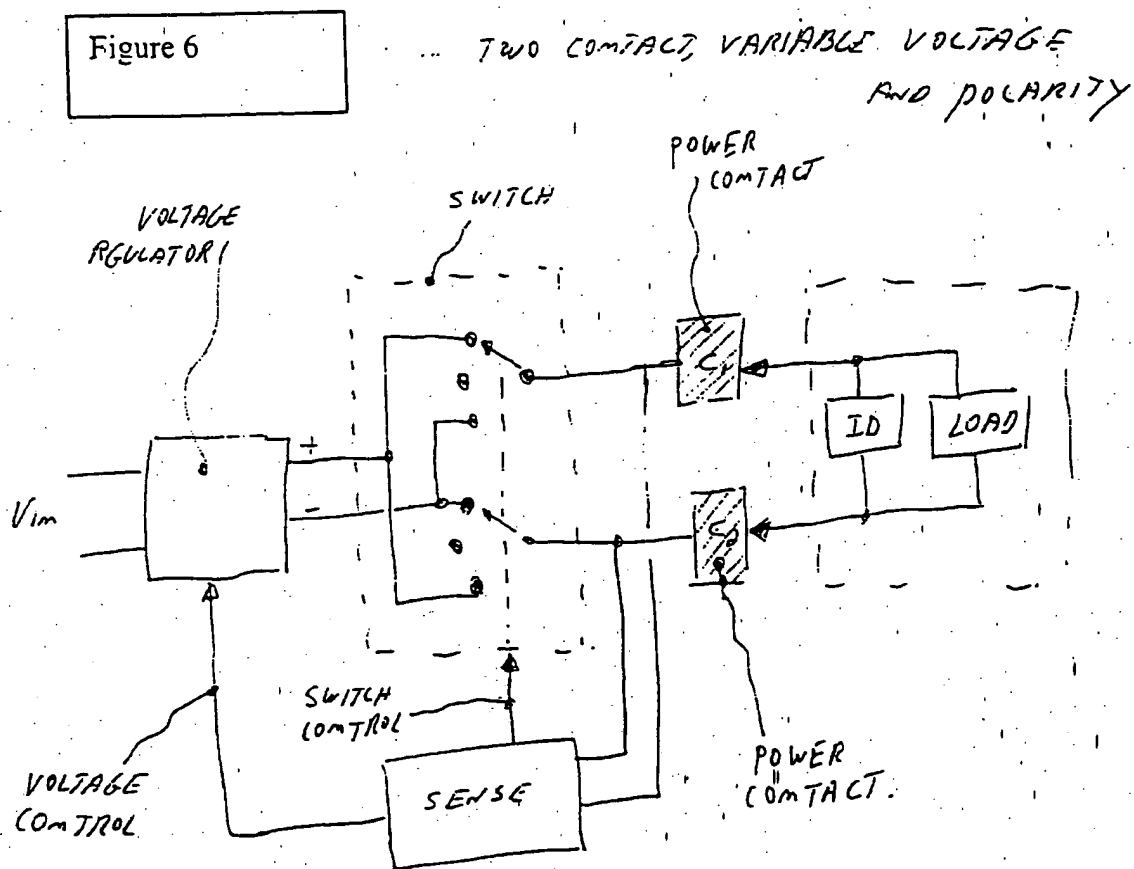 Figure 6
... TWO COMTACT, VARIABLE VOLTAGE
AND POLARITY
POWER
COMTACT
SWITCH
VOLTAGE
RGULATOR
+
-
Vin
C1
ID
LOAD
C2
SWITCH
COMTROL
SENSE
VOLTAGE
COMTROL
POWER
COMTACT.